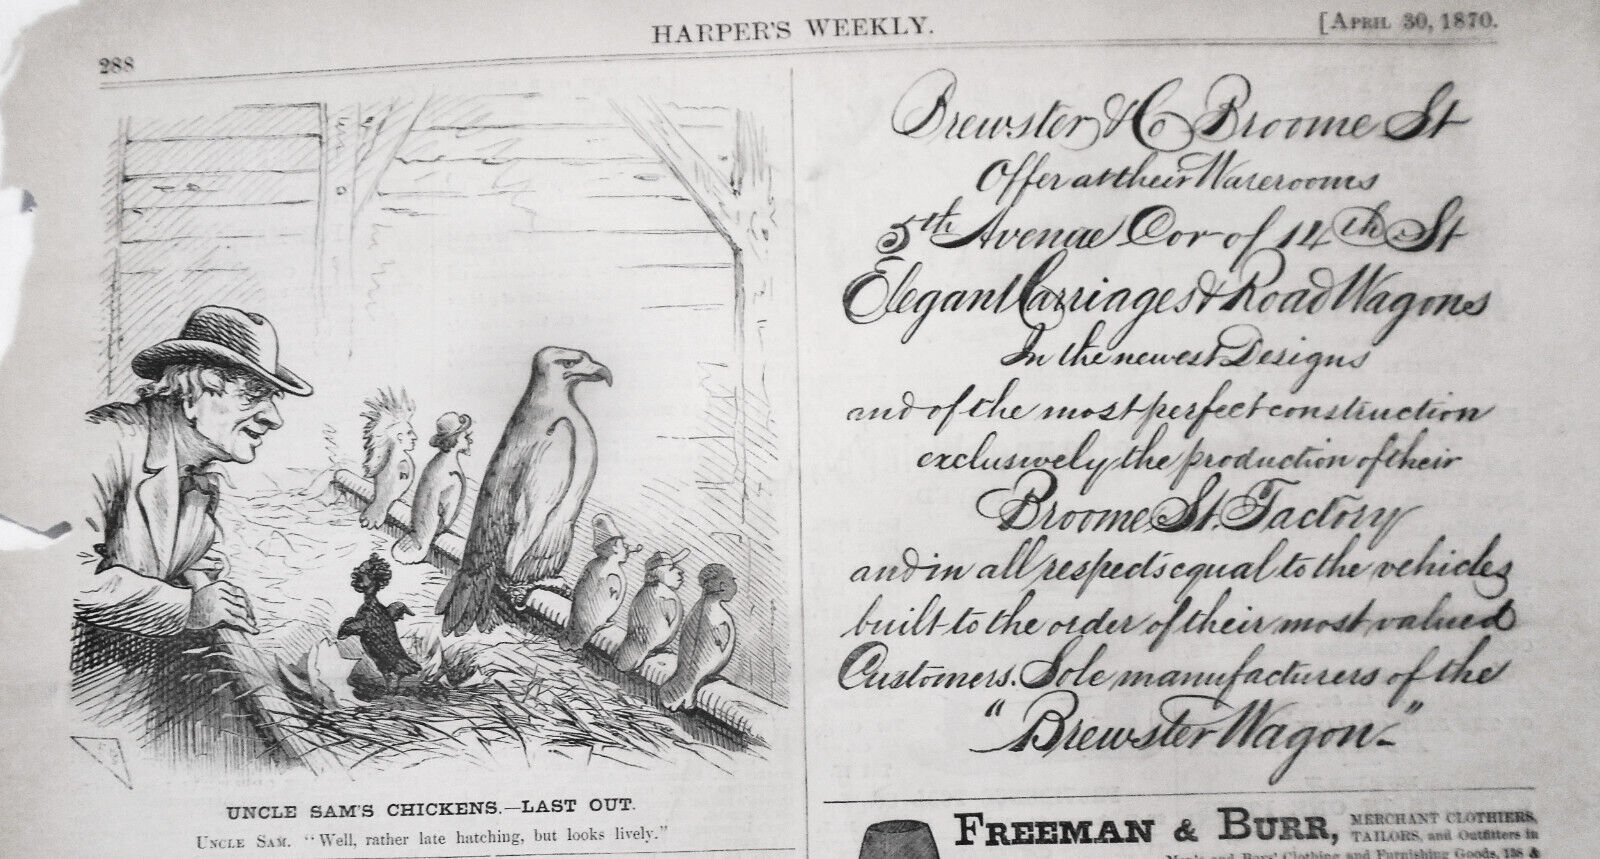 288
HARPER'S WEEKLY.
[APRIL 30, 1870.
UNCLE SAM'S CHICKENS.—LAST OUT.
UNCLE SAM. "Well, rather late hatching, but looks lively."
Brewster & Co Broome St
Offer at their Warerooms
5th Avenue Cor of 14th St
Elegant Carriages & Road Wagons
In the newest Designs
and of the most perfect construction
exclusively the production of their
Broome St. Factory
and in all respects equal to the vehicles
built to the order of their most valued
Customers. Sole manufacturers of the
"Brewster Wagon"
FREEMAN & BURR,
MERCHANT CLOTHIERS,
TAILORS, and Outfitters in
Men's and Boys' Clothing and Furnishing Goods, 138 &